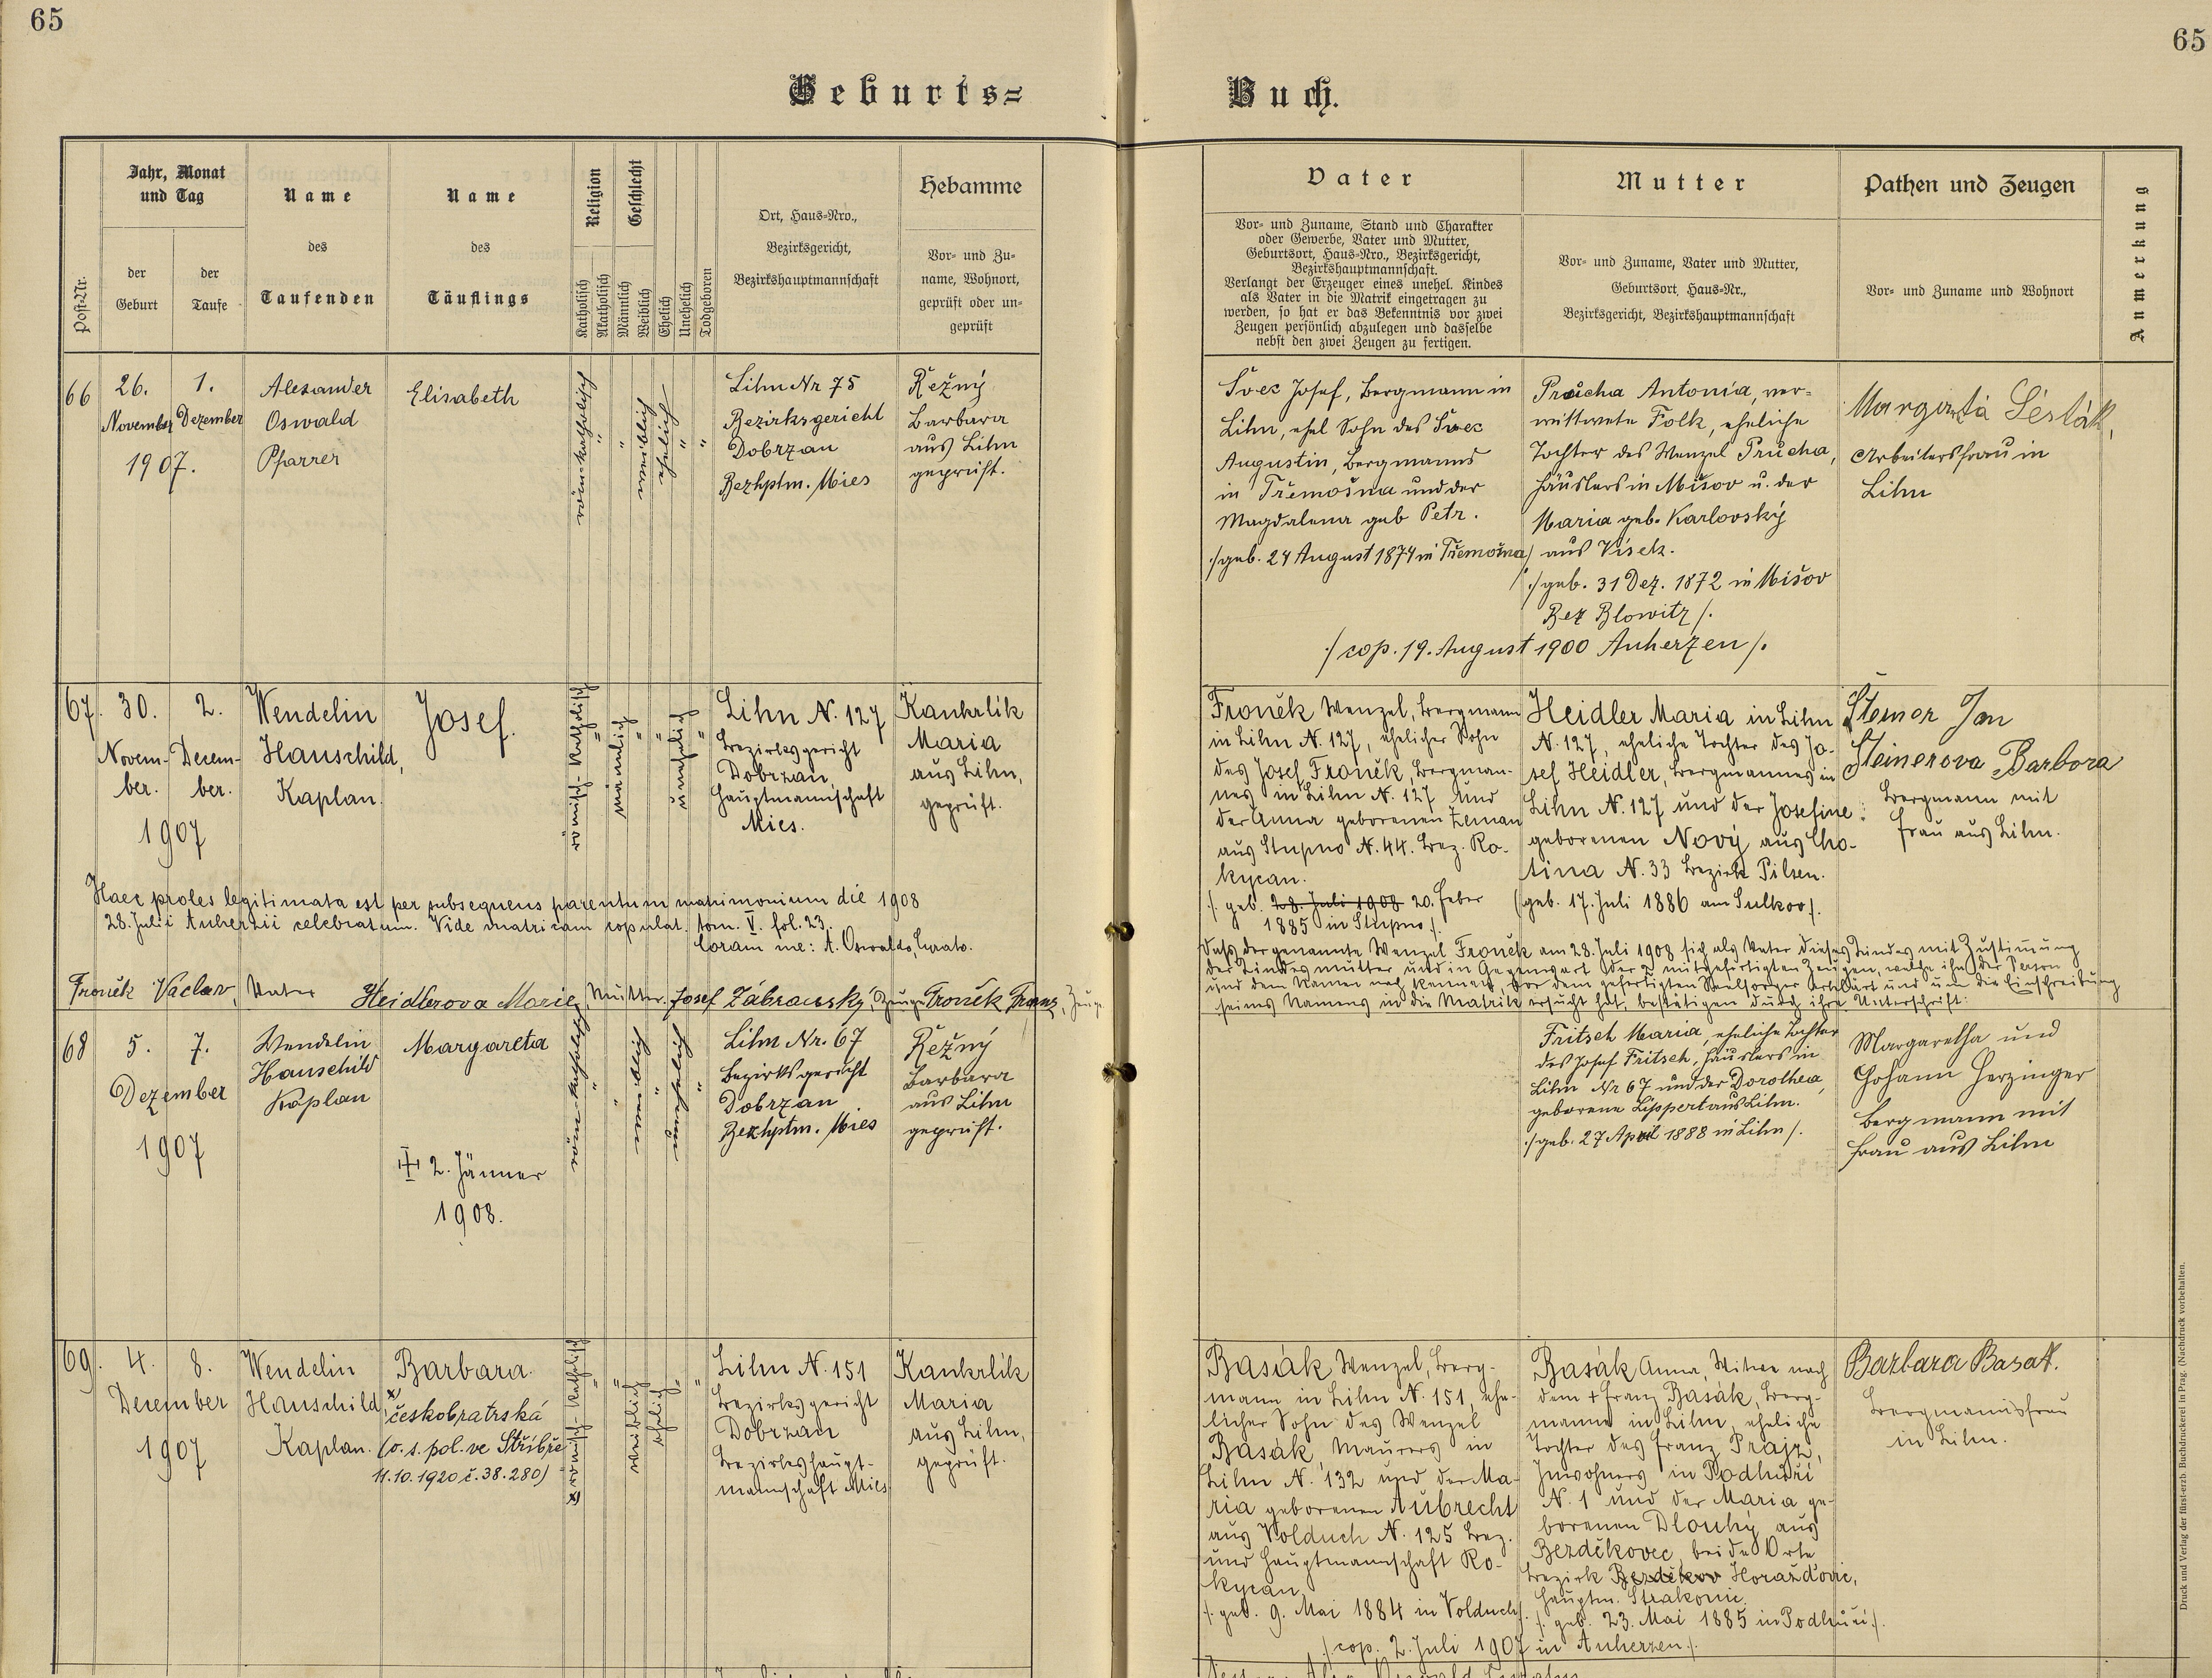 65
65
Geburts=
Buch.
Post-Nr.
Jahr, Monat
und Tag
der
Geburt
der
Taufe
Name
des
Taufenden
Name
des
Täuflings
Religion
Katholisch
Akatholisch
Geschlecht
Männlich
Weiblich
Ehelich
Unehelich
Todgeboren
Ort, Haus-Nro.,
Bezirksgericht,
Bezirkshauptmannschaft
Hebamme
Vor- und Zu-
name, Wohnort,
geprüft oder un-
geprüft
Vater
Vor- und Zuname, Stand und Charakter
oder Gewerbe, Vater und Mutter,
Geburtsort, Haus-Nro., Bezirksgericht,
Bezirkshauptmannschaft.
Verlangt der Erzeuger eines unehel. Kindes
als Vater in die Matrik eingetragen zu
werden, so hat er das Bekenntnis vor zwei
Zeugen persönlich abzulegen und dasselbe
nebst den zwei Zeugen zu fertigen.
Mutter
Vor- und Zuname, Vater und Mutter,
Geburtsort, Haus-Nr.,
Bezirksgericht, Bezirkshauptmannschaft
Pathen und Zeugen
Vor- und Zuname und Wohnort
Anmerkung
66
26.
November
1.
Dezember
1907.
Alexander
Oswald
Pfarrer
Elisabeth
röm-katholisch
"
"
weiblich
ehelich
"
"
Lihn Nr 75
Bezirksgericht
Dobrzan
Bezhptm. Mies
Řežný
Barbara
aus Lihn
geprüft.
Švec Josef, Bergmann in
Lihn, ehel Sohn des Švec
Augustin, Bergmanns
in Třemošna und der
Magdalena geb Petr.
./geb. 24 August 1874 in Třemošna/
Průcha Antonia, ver-
wittwete Folk, eheliche
Tochter des Wenzel Průcha,
Häuslers in Mišov u. der
Maria geb. Karlovský
aus Visek.
./geb. 31 Dez. 1872 in Mišov
Bez Blowitz/.
./cop. 19. August 1900 Auherzen/.
Arbeitersfrau in
Lihn
67.
30.
Novem-
ber.
2.
Decem-
ber.
1907
Wendelin
Hauschild,
Kaplan.
Josef.
römisch-katholisch
"
männlich
"
"
unehelich
"
Lihn N. 127
Bezirksgericht
Dobrzan,
Hauptmannschaft
Mies.
Kankrlík
Maria
aus Lihn,
geprüft.
Froněk Wenzel, Bergmann
in Lihn N. 127, ehelicher Sohn
des Josef Froněk, Bergman-
nes in Lihn N. 127 und
der Anna geborenen Zeman
aus Stupno N. 44. Bez. Ro-
kycan.
/. geb. 28. Juli 1908 20. Feber
1885 in Stupno/.
Heidler Maria in Lihn
N. 127, eheliche Tochter des Jo-
sef Heidler, Bergmannes in
Lihn N. 127 und der Josefine
geborenen Nový aus Cho-
tina N. 33 Bezirk Pilsen.
(geb. 17. Juli 1886 am Sulkov/.
Steiner Jan
Steinerova Barbora
Bergmann mit
Frau aus Lihn.
Haec proles legitimata est per subsequens parentum matrimonium die 1908
28. Julii Auherzii celebratum. Vide matricam copulat. tom. V. fol. 23.
Coram me: A. Oswaldo, Curato.
Froněk Václav, Vater Heidlerova Marie, Mutter. Josef Zábranský, Zeuge Froněk Franz, Zeuge.
Daß der genannte Wenzel Froněk am 28. Juli 1908 sich als Vater dieses Kindes mit Zustimmung
der Kindesmutter und in Gegenwart der 2 mitgefertigten Zeugen, welche ihn der Person
und dem Namen nach kennen, vor dem gefertigten Seelsorger erklärt und um die Einschreibung
seines Namens in die Matrik ersucht hat, bestätigen durch ihre Unterschrift:
68
5.
7.
Dezember
1907
Wendelin
Hauschild
Kaplan
Margareta
2. Jänner
1908.
röm-katholisch
"
"
weiblich
"
unehelich
"
Lihn Nr. 67
Bezirksgericht
Dobrzan
Bezhptm. Mies
Řežný
Barbara
aus Lihn
geprüft.
Fritsch Maria, eheliche Tochter
des Josef Fritsch, Häuslers in
Lihn Nr 67 und der Dorothea,
geborene Lippert aus Lihn.
./geb. 27 April 1888 in Lihn/.
Margaretha und
Johann Herzinger
Bergmann mit
Frau aus Lihn
69.
4.
8.
December
1907
Wendelin
Hauschild,
Kaplan.
Barbara.
x českobratrská
(o. s. pol. ve Stříbře
11.10.1920 č. 38.280)
x römisch-katholisch
"
"
weiblich
ehelich
"
"
Lihn N. 151
Bezirksgericht
Dobrzan
Bezirkshaupt-
mannschaft Mies
Kankrlík
Maria
aus Lihn,
geprüft.
Basák Wenzel, Berg-
mann in Lihn N. 151, ehe-
licher Sohn des Wenzel
Basák, Maurers in
Lihn N. 132 und der Ma-
ria geborenen Aubrecht
aus Volduch N. 125 Bez.
und Hauptmannschaft Ro-
kycan.
/. geb. 9. Mai 1884 in Volduch/.
Basák Anna, Witwe nach
dem + Franz Basák, Berg-
manne in Lihn, eheliche
Tochter des Franz Prajz,
Inwohners in Podhuří
N. 1 und der Maria ge-
borenen Dlouhý aus
Bezděkovec, beide Orte
Bezirk Bezděkov Horažďovic,
Hauptm. Strakonic.
/. geb. 23. Mai 1885 in Podhuří/.
/cop. 2. Juli 1907 in Auherzen/.
Barbara Basak.
Bergmannsfrau
in Lihn.
Druck und Verlag der fürst-erzb. Buchdruckerei in Prag. (Nachdruck vorbehalten.